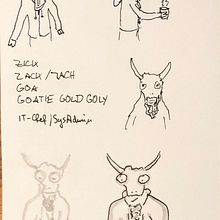 ZICK
ZACK / ZACH
GOA
GOATIE GOLD GOLY
IT-Chef / SysAdmin